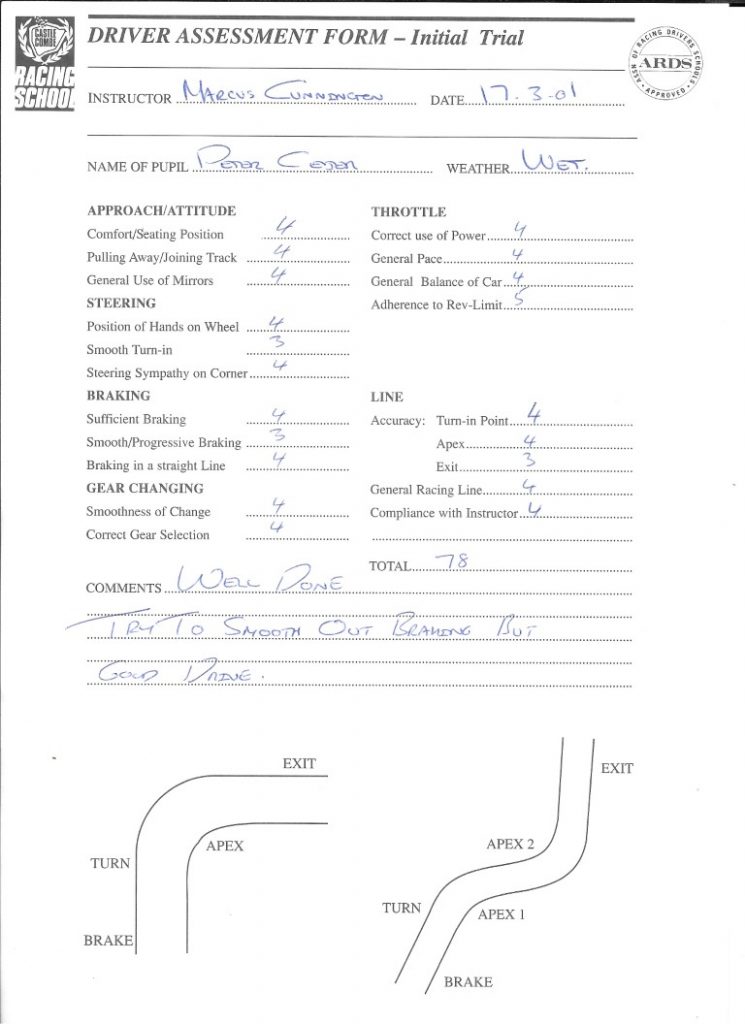 CASTLE COMBE
RACING SCHOOL
DRIVER ASSESSMENT FORM – Initial Trial
ASSN OF RACING DRIVERS SCHOOLS
ARDS
• APPROVED •
INSTRUCTOR MARCUS CUNNINGTON DATE 17.3.01
NAME OF PUPIL PETER WEATHER WET.
APPROACH/ATTITUDE
Comfort/Seating Position 4
Pulling Away/Joining Track 4
General Use of Mirrors 4
STEERING
Position of Hands on Wheel 4
Smooth Turn-in 3
Steering Sympathy on Corner 4
BRAKING
Sufficient Braking 4
Smooth/Progressive Braking 3
Braking in a straight Line 4
GEAR CHANGING
Smoothness of Change 4
Correct Gear Selection 4
THROTTLE
Correct use of Power 4
General Pace 4
General Balance of Car 4
Adherence to Rev-Limit 5
LINE
Accuracy: Turn-in Point 4
Apex 4
Exit 3
General Racing Line 4
Compliance with Instructor 4
TOTAL 78
COMMENTS WELL DONE
TRY TO SMOOTH OUT BRAKING BUT
GOOD DRIVE.
EXIT
APEX
TURN
BRAKE
EXIT
APEX 2
TURN
APEX 1
BRAKE